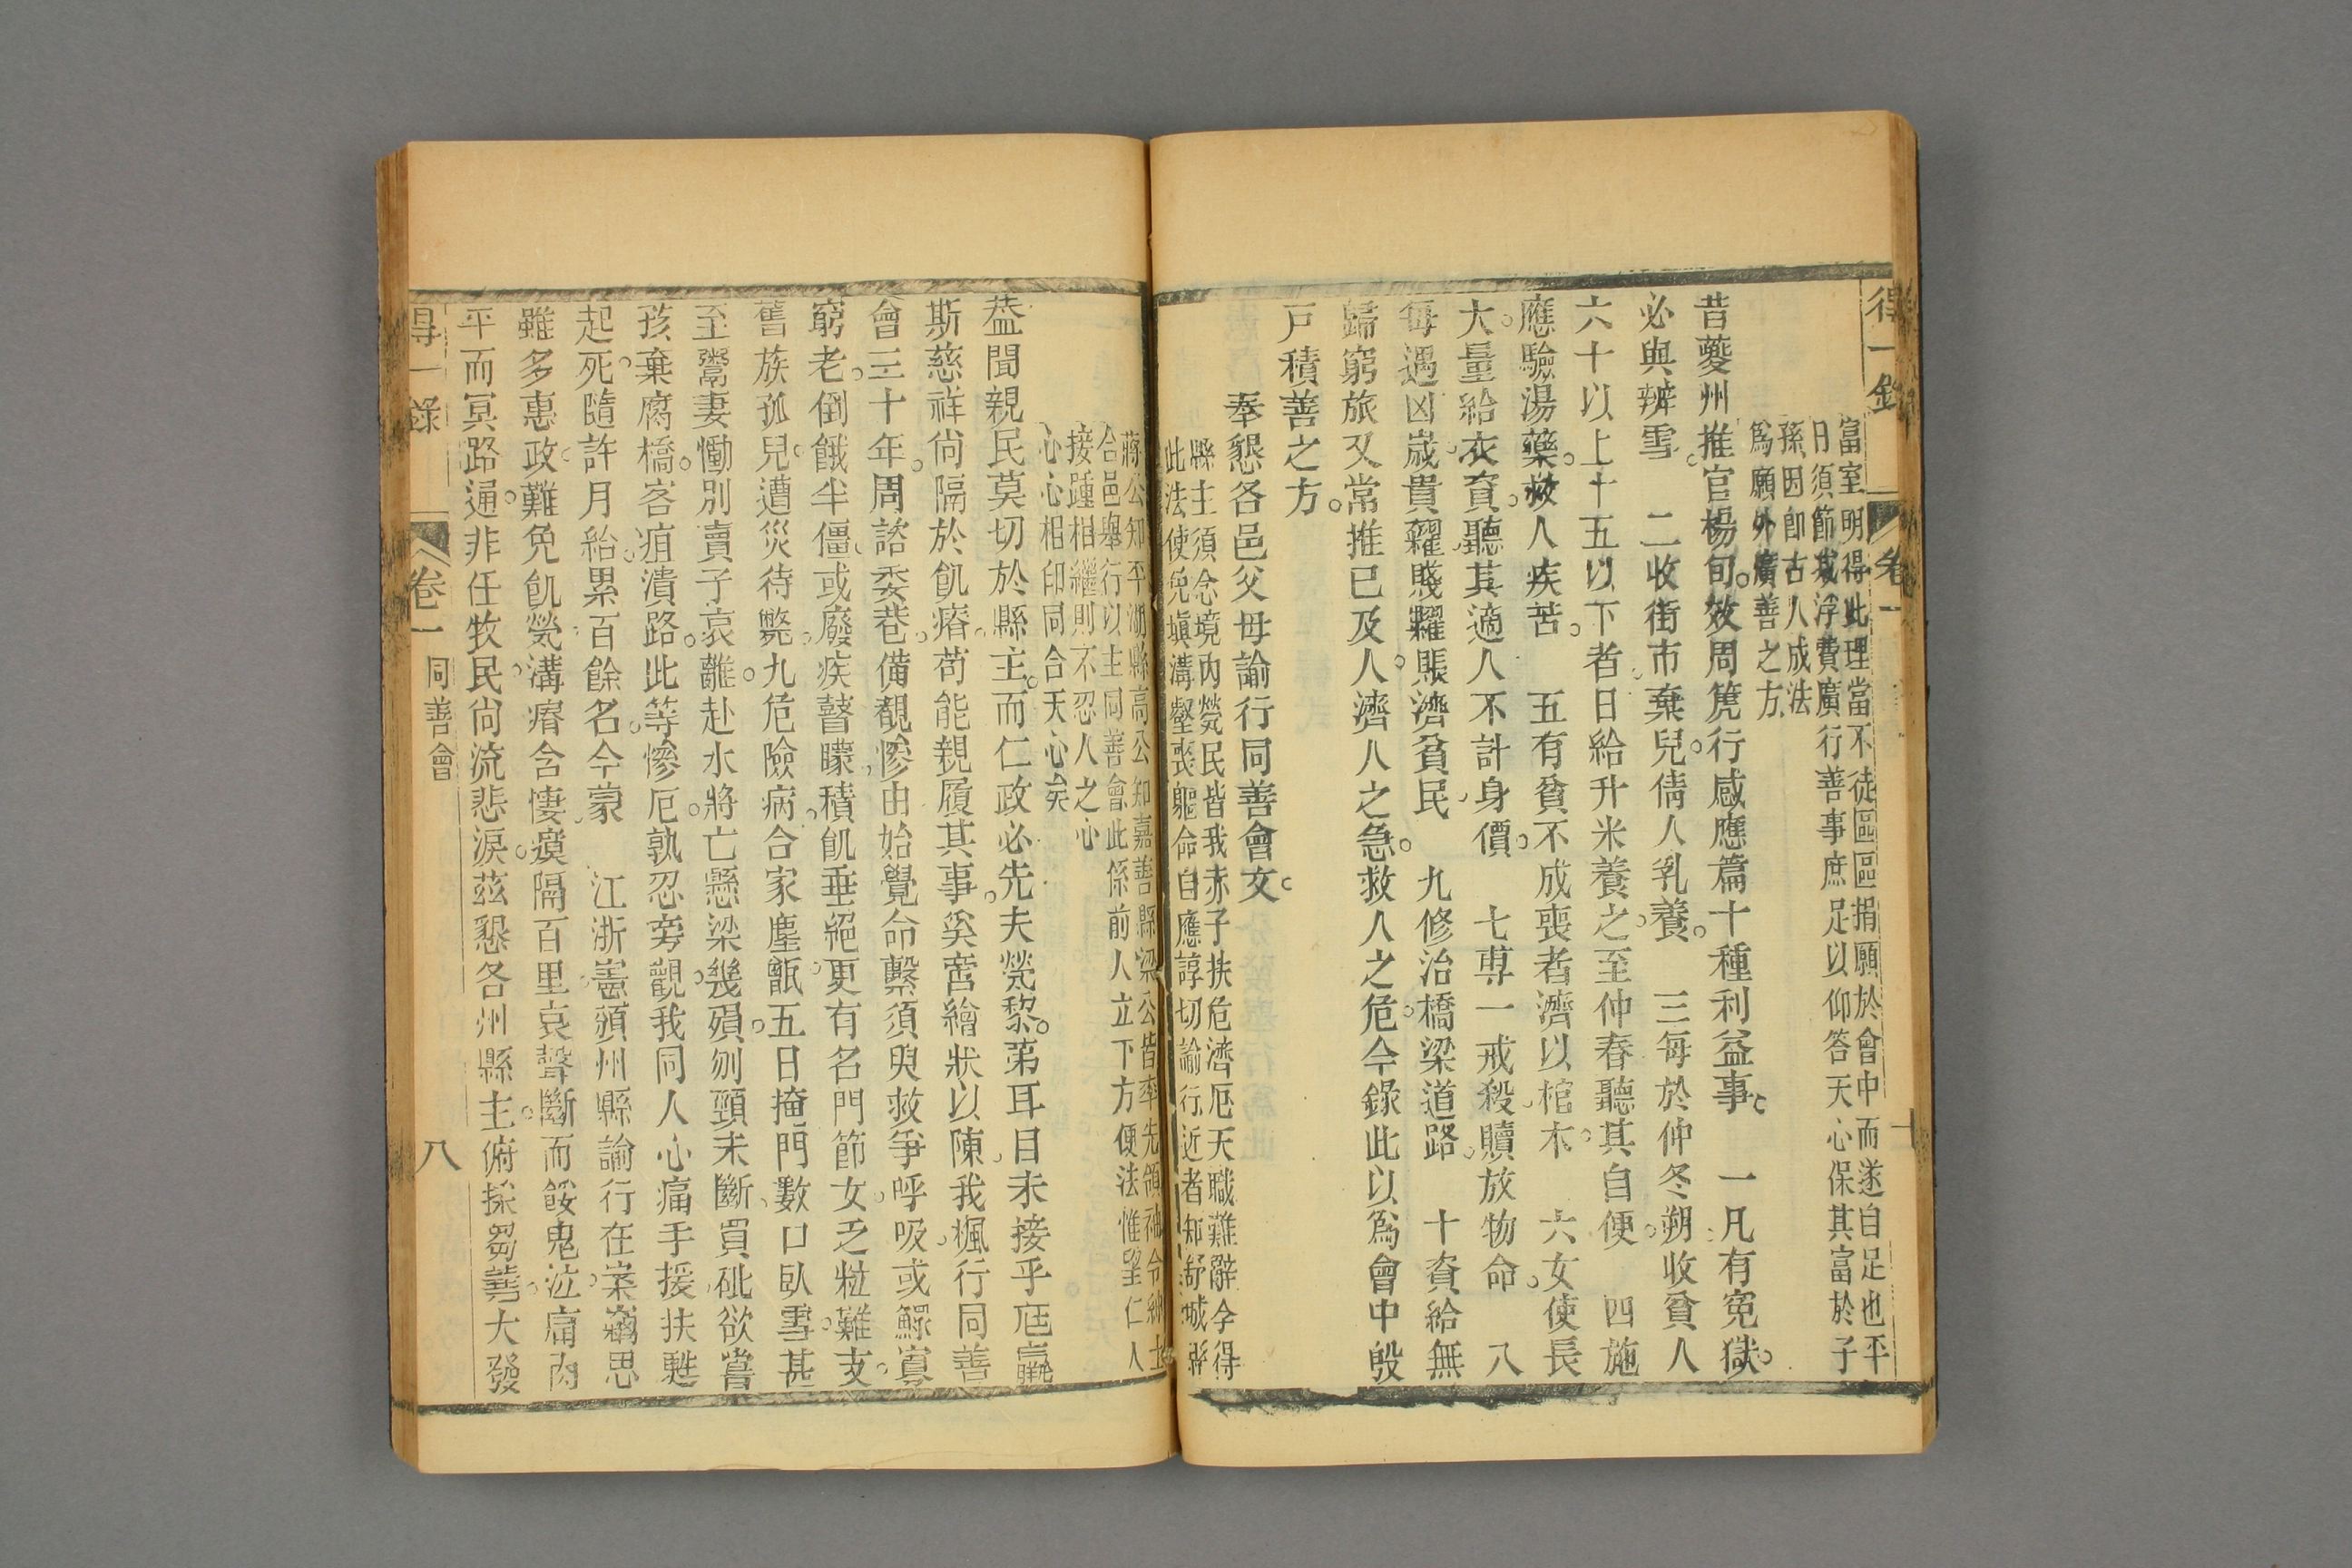 得一錄
卷一
富室明得此理當不徒區區捐願於會中而遂自足也平
日須節減浮費廣行善事庶足以仰答天心保其富於子
孫因卽古人成法
爲願外廣善之方
昔夔州推官楊旬效周箎行感應篇十種利益事 一凡有寃獄
必與辨雪 二收街市棄兒倩人乳養 三每於仲冬朔收貧人
六十以上十五以下者日給升米養之至仲春聽其自便 四施
應驗湯藥救人疾苦 五有貧不成喪者濟以棺木 六女使長
大量給衣資聽其適人不計身價 七專一戒殺贖放物命 八
每遇凶歲貴糴賤糶賬濟貧民 九修治橋梁道路 十資給無
歸窮旅又常推已及人濟人之急救人之危今錄此以爲會中殷
戸積善之方
奉懇各邑父母諭行同善會文
縣主須念境內煢民皆我赤子扶危濟厄天職難辭今得
此法使免塡溝壑喪軀命自應諄切諭行近者知舒城縣
蔣公知平湖縣高公知嘉善縣梁公皆率先領袖令紳士
合邑舉行以主同善會此係前人立下方便法惟望仁人
接踵相繼則不忍人之心
心心相印同合天心矣
葢聞親民莫切於縣主而仁政必先夫煢黎第耳目未接乎尫羸
斯慈祥尙隔於飢瘠苟能親履其事奚啻繪狀以陳我楓行同善
會三十年周諮委巷備覩慘由始覺命繫須臾救爭呼吸或鰥寡
窮老倒餓半僵或廢疾瞽矇積飢垂絕更有名門節女乏粒難支
舊族孤兒遭災待斃九危險病合家塵甑五日掩門數口臥雪甚
至鬻妻慟別賣子哀離赴水將亡懸梁幾殞刎頸未斷買砒欲嘗
孩棄腐橋客疽潰路此等慘厄孰忍旁觀我同人心痛手援扶甦
起死隨許月給累百餘名今蒙 江浙憲頒州縣諭行在案竊思
雖多惠政難免飢煢溝瘠含悽瘼隔百里哀聲斷而餒鬼泣痛肉
平而冥路通非任牧民尙流悲淚茲懇各州縣主俯採芻蕘大發
得一錄
卷一
同善會
八